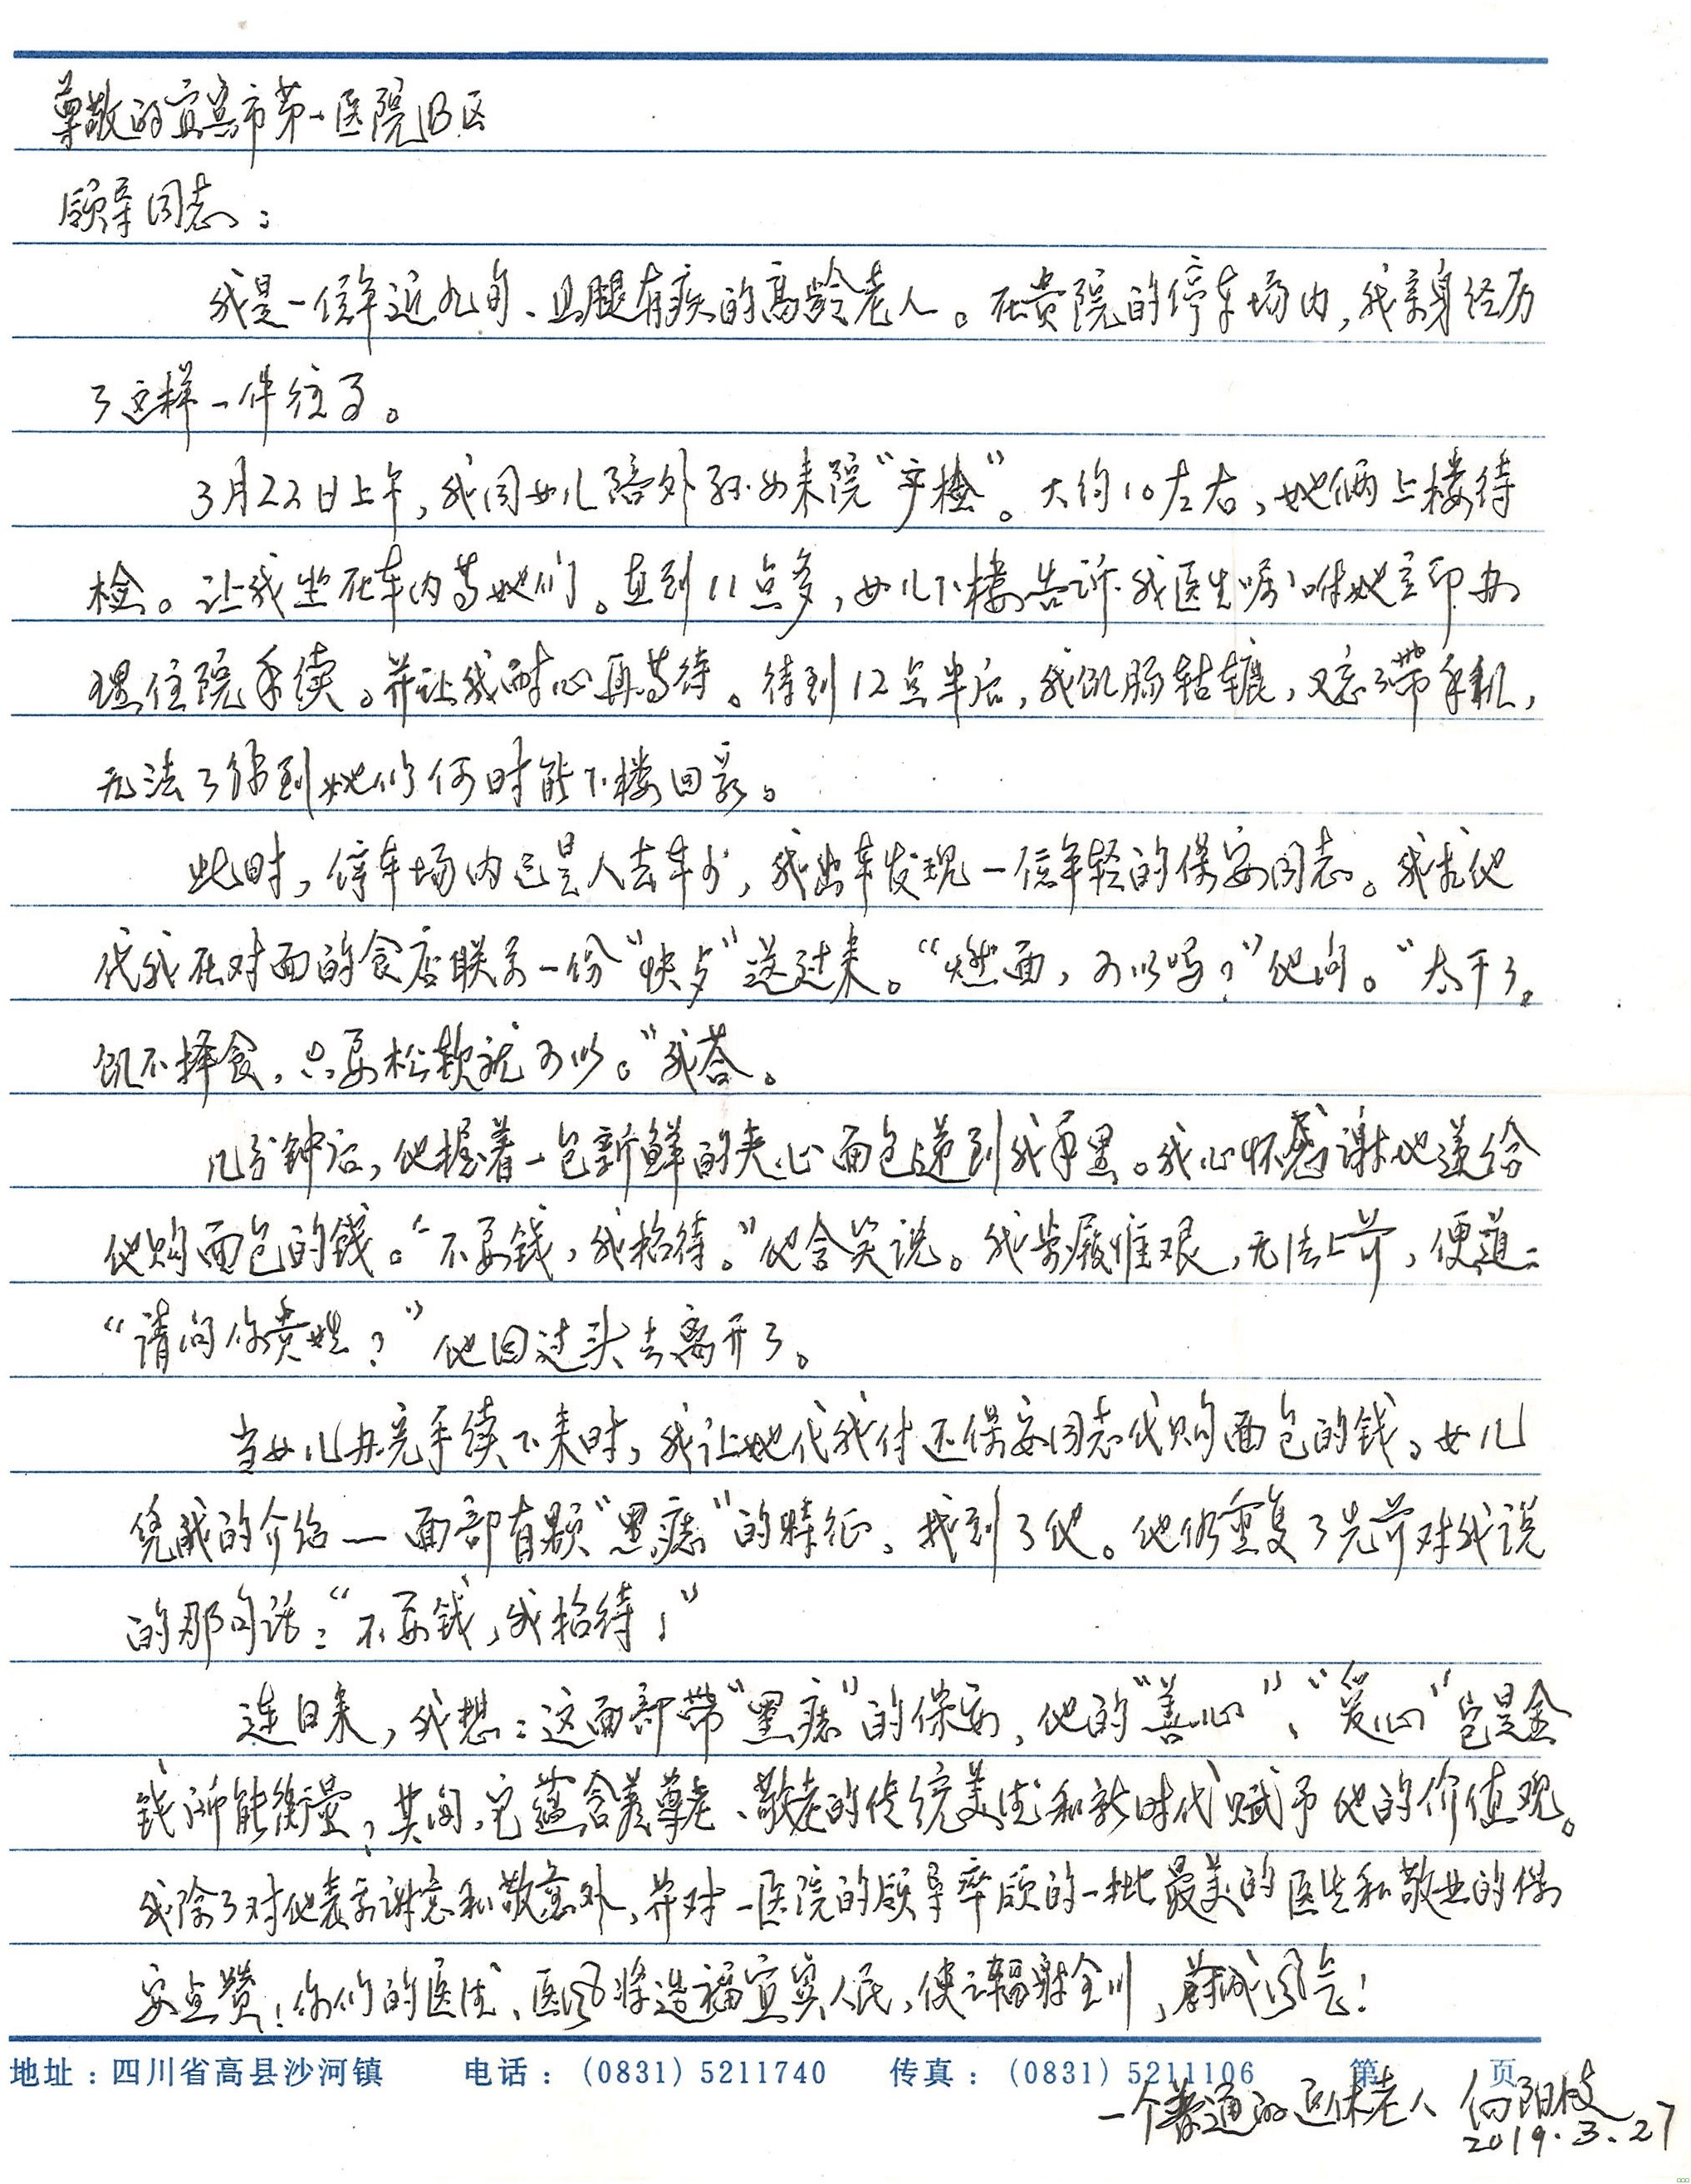 尊敬的宜宾市第一医院B区
领导同志：
我是一位年近九旬、且腿有疾的高龄老人。在贵院的停车场内，我亲身经历
了这样一件往事。
3月22日上午，我同女儿陪外孙女来院“产检”。大约10左右，她俩上楼待
检。让我坐在车内等她们。直到11点多，女儿下楼告诉我医生嘱咐她立即办
理住院手续。并让我耐心再等待。待到12点半后，我饥肠轱辘，又忘了带手机，
无法了解到她们何时能下楼回家。
此时，停车场内已是人去车少，我出车发现一位年轻的保安同志。我求他
代我在对面的食店联系一份“快点”送过来。“燃面，可以吗？”他问。“太干了。
饥不择食，只要松软就可以。”我答。
几分钟后，他握着一包新鲜的夹心面包递到我手里。我心怀感谢地送给
他购面包的钱。“不要钱，我招待。”他含笑说。我步履维艰，无法上前，便道：
“请问你贵姓？”他回过头去离开了。
当女儿办完手续下来时，我让她代我付还保安同志代购面包的钱，女儿
凭我的介绍一面部有颗“黑痣”的特征，找到了他。他仍重复了先前对我说
的那句话：“不要钱，我招待！”
连日来，我想：这面部带“黑痣”的保安，他的“善心”、“爱心”岂是金
钱所能衡量，其间，它蕴含着尊老、敬老的传统美德和新时代赋予他的价值观。
我除了对他表示谢意和敬意外，并对一医院的领导率领的一批最美的医生和敬业的保
安点赞！你们的医德、医风将造福宜宾人民，使之辐射全川，蔚成风气！
地址：四川省高县沙河镇 电话：(0831) 5211740 传真：(0831) 5211106 第 页
一个普通的退休老人 向阳枝
2019.3.27